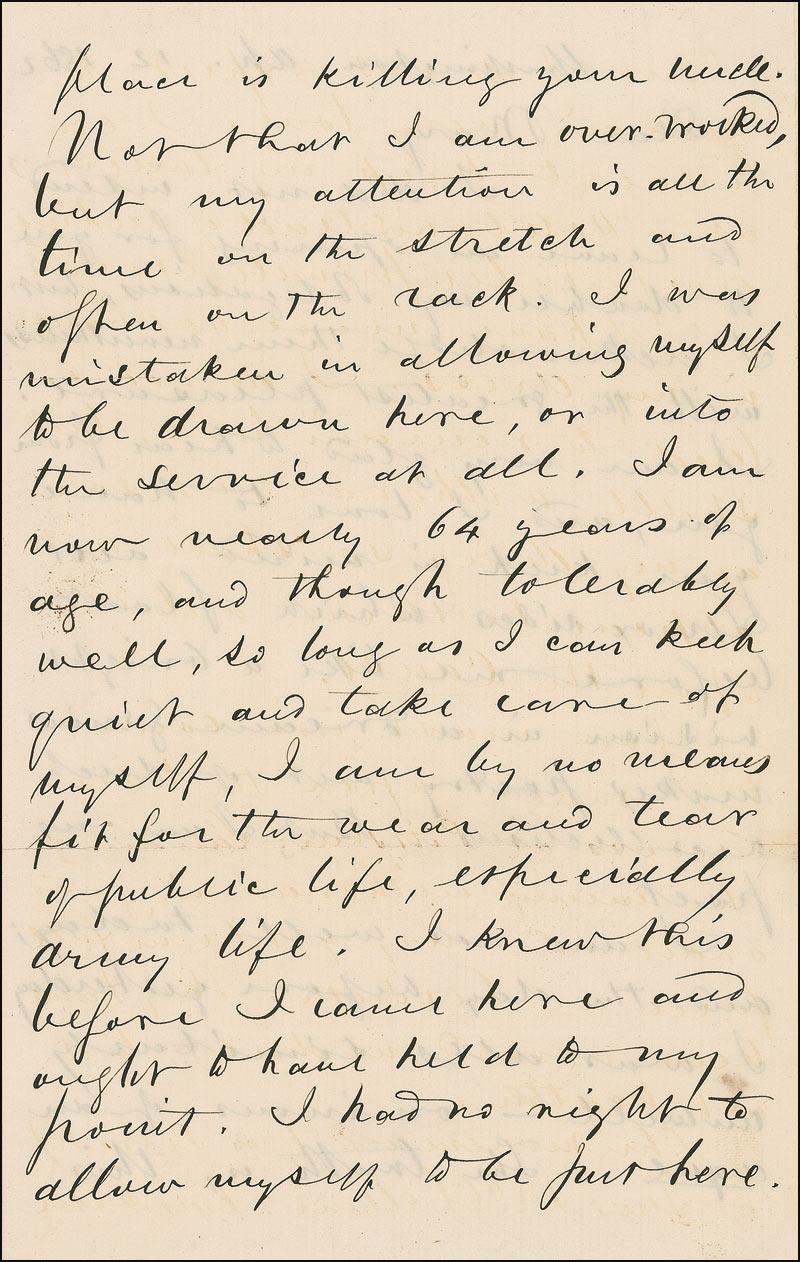 place is killing your uncle.
Not that I am over-worked,
but my attention is all the
time on the stretch and
often on the rack. I was
mistaken in allowing myself
to be drawn here, or into
the service at all. I am
now nearly 64 years of
age, and though tolerably
well, so long as I can keep
quiet and take care of
myself, I am by no means
fit for the wear and tear
of public life, especially
army life. I knew this
before I came here and
ought to have held to my
point. I had no right to
allow myself to be put here.